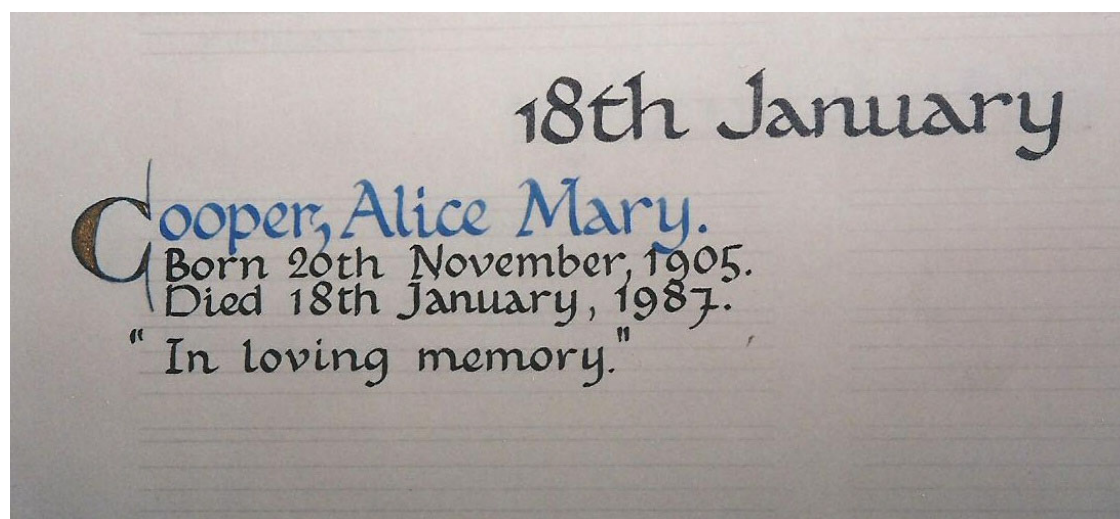 18th January
Cooper, Alice Mary.
Born 20th November, 1905.
Died 18th January, 1987.
" In loving memory."